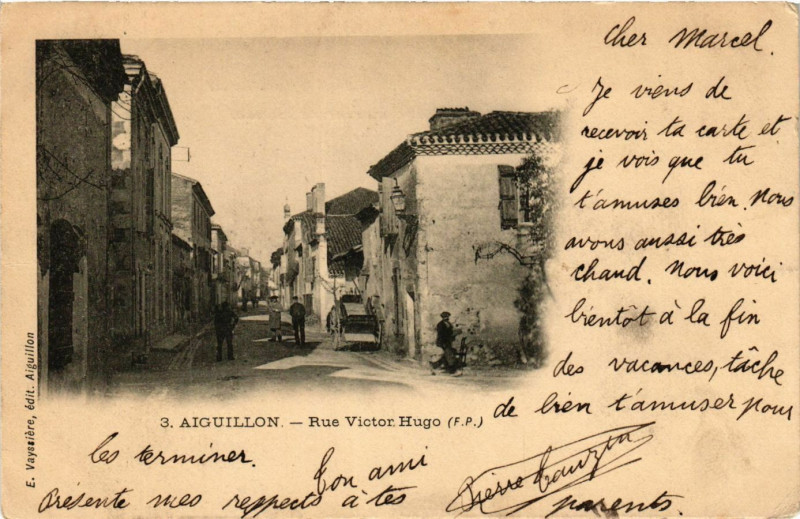 Cher Marcel.
Je viens de
recevoir ta carte et
je vois que tu
t'amuses bien. Nous
avons aussi très
chaud. Nous voici
bientôt à la fin
des vacances, tâche
de bien t'amuser pour
les terminer.
Ton ami
Pierre Cauzin
Présente mes respects à tes
parents.
3. AIGUILLON. — Rue Victor Hugo (F.P.)
E. Vayssière, édit. Aiguillon